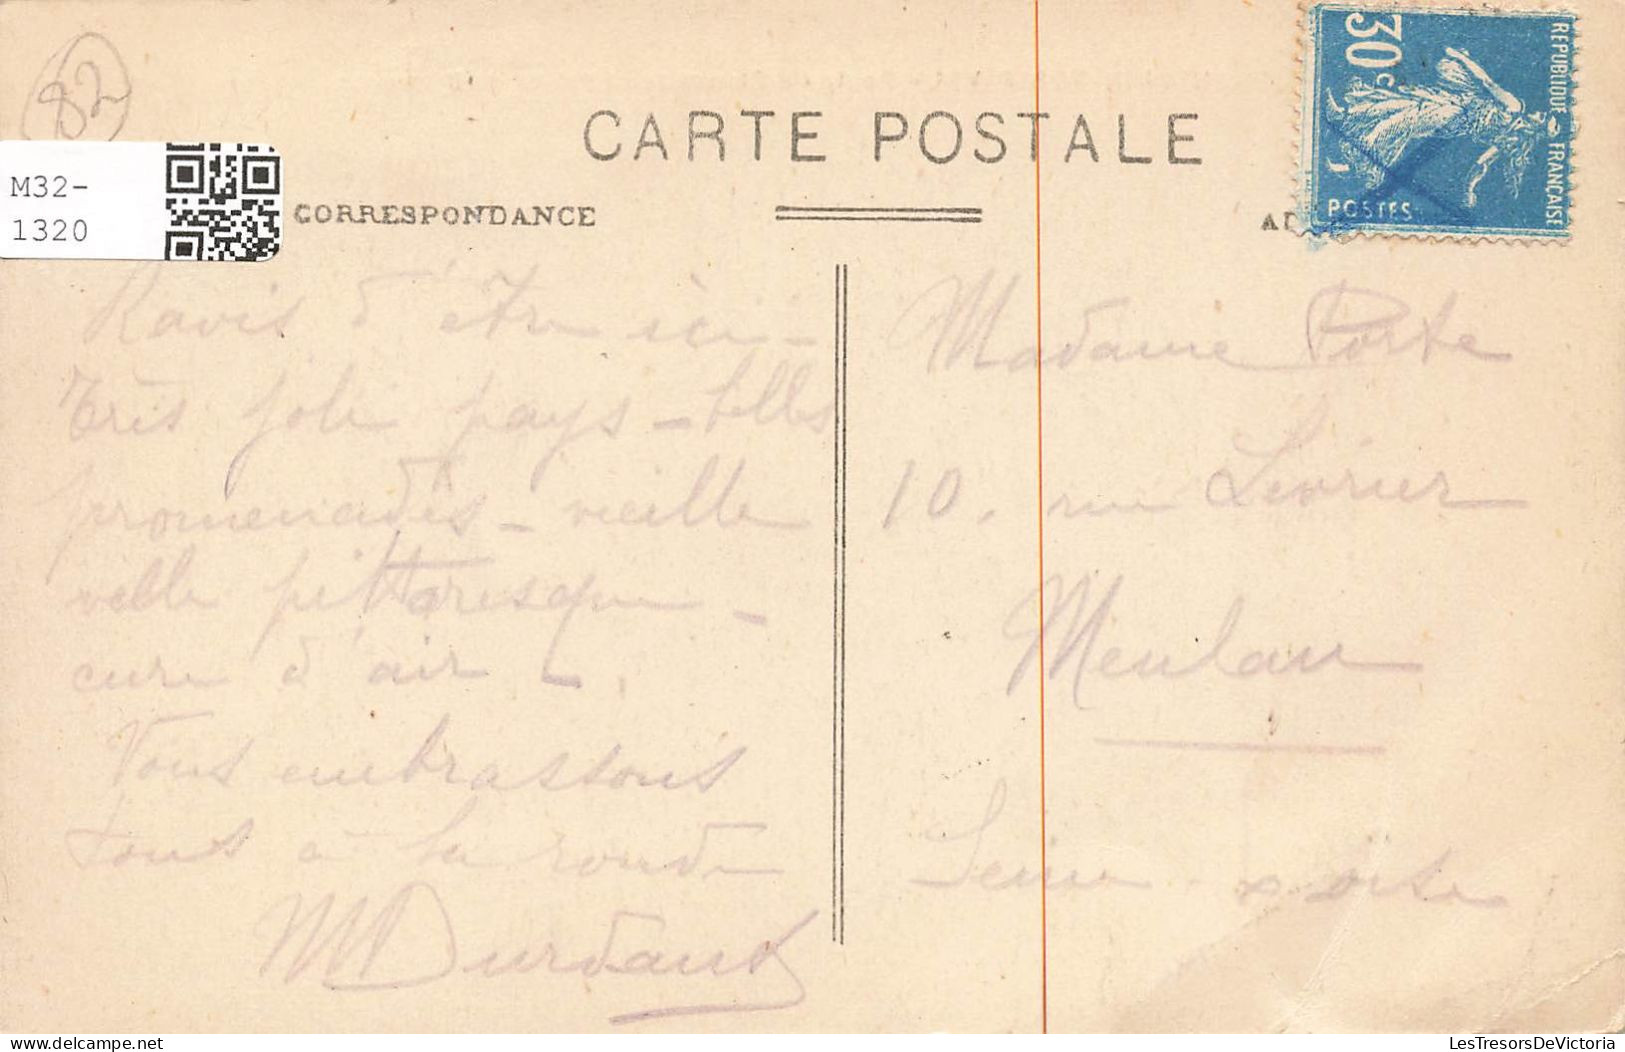 82
M32-
1320
CARTE POSTALE
CORRESPONDANCE
30c
REPUBLIQUE FRANCAISE
POSTES
Ravis d'être ici -
très joli pays - belles
promenades - vieille
ville pittoresque -
cure d'air -.
Vous embrassons
tous à la ronde
Madame Porte
10, rue Levrier
Meulan
Seine & Oise
delcampe.net
LesTresorsDeVictoria